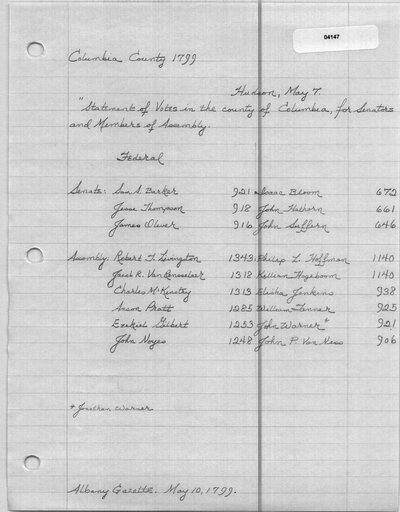 04147
Columbia County 1799
Hudson, May 7.
"Statement of Votes in the county of Columbia, for Senators
and Members of Assembly.
Federal
Senate: Sam S. Barker 921 Isaac Bloom 672
Jesse Thompson 918 John Hathorn 661
James Oliver 916 John Suffern 646
Assembly: Robert T. Livingston 1343 Philip L. Hoffman 1140
Jacob R. Van Rensselaer 1318 Killian Hogeboom 1140
Charles McKinstry 1313 Elisha Jenkins 938
Anson Pratt 1285 William Tanner 925
Ezekiel Gilbert 1253 John Warner* 921
John Noyes 1248 John P. Van Ness 906
* Jonathan Warner
Albany Gazette. May 10, 1799.